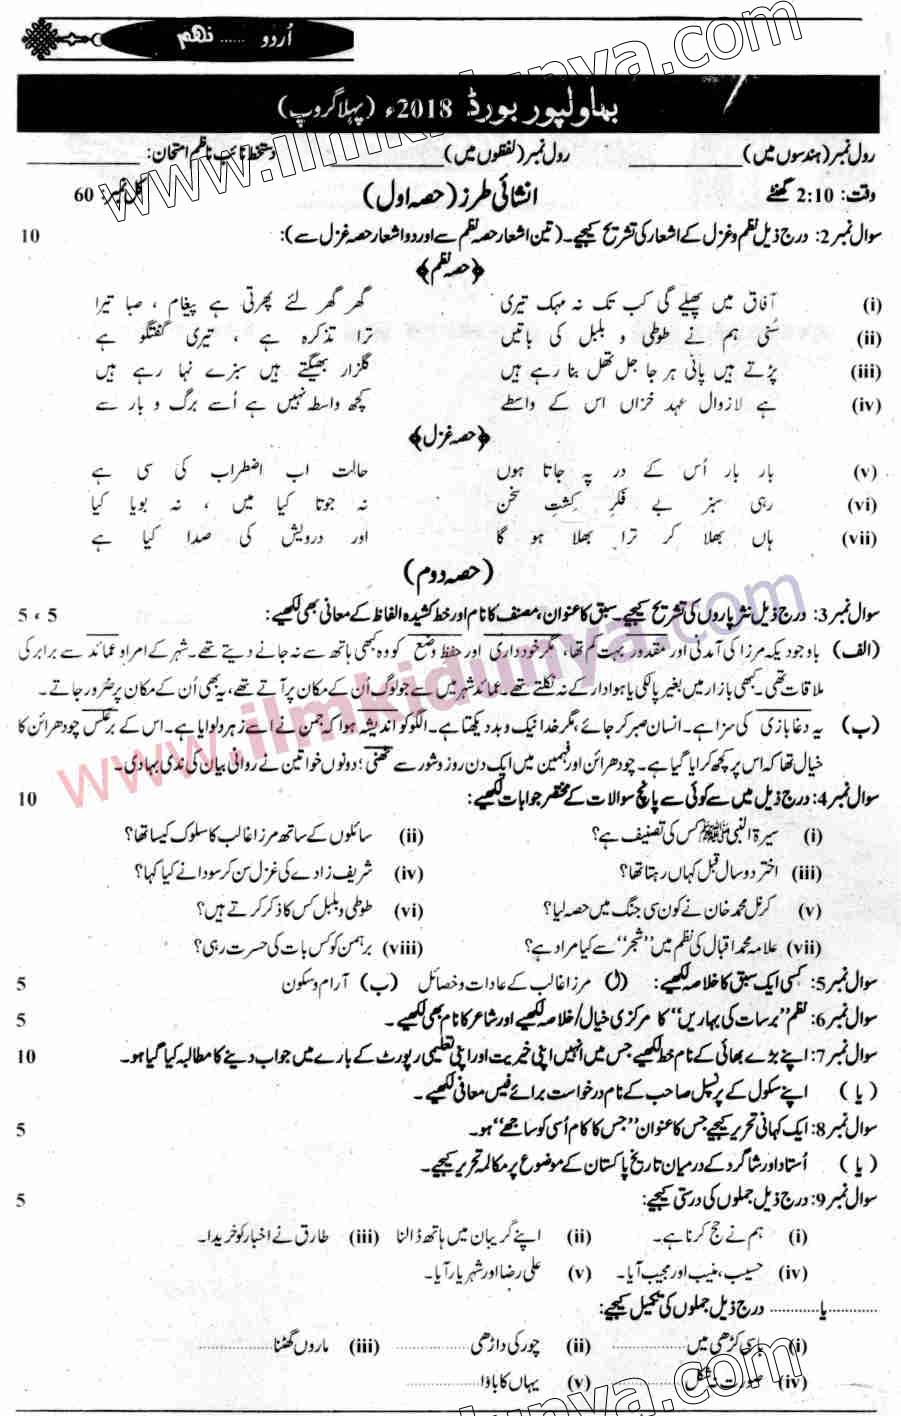 اُردو ...... نہم
بہاولپور بورڈ 2018ء (پہلا گروپ)
رول نمبر (ہندسوں میں)__________ رول نمبر (لفظوں میں)__________ دستخط نائب ناظم امتحان: __________
وقت: 2:10 گھنٹے انشائی طرز (حصہ اول) کل نمبر: 60
سوال نمبر 2: درج ذیل نظم و غزل کے اشعار کی تشریح کیجیے۔ (تین اشعار حصہ نظم سے اور دو اشعار حصہ غزل سے): 10
﴿حصہ نظم﴾
(i) آفاق میں پھیلے گی کب تک نہ مہک تیری گھر گھر لئے پھرتی ہے پیغام ، صبا تیرا
(ii) سُنی ہم نے طوطی و بلبل کی باتیں ترا تذکرہ ہے ، تیری گفتگو ہے
(iii) پڑتے ہیں پانی ہر جا جل تھل بنا رہے ہیں گلزار بھیگتے ہیں سبزے نہا رہے ہیں
(iv) ہے لازوال عہد خزاں اس کے واسطے کچھ واسطہ نہیں ہے اُسے برگ و بار سے
﴿حصہ غزل﴾
(v) بار بار اُس کے در پہ جاتا ہوں حالت اب اضطراب کی سی ہے
(vi) رہی سبز بے فکر کِشتِ سخن نہ جوتا کیا میں ، نہ بویا کیا
(vii) ہاں بھلا کر ترا بھلا ہو گا اور درویش کی صدا کیا ہے
(حصہ دوم)
سوال نمبر 3: درج ذیل نثر پاروں کی تشریح کیجیے۔ سبق کا عنوان، مصنف کا نام اور خط کشیدہ الفاظ کے معانی بھی لکھیے: 5 ، 5
(الف) باوجود یکہ مرزا کی آمدنی اور مقدور بہت کم تھا، مگر خودداری اور حفظِ وضع کو وہ کبھی ہاتھ سے نہ جانے دیتے تھے۔ شہر کے امرا و عمائد سے برابر کی
ملاقات تھی۔ کبھی بازار میں بغیر پالکی یا ہوادار کے نہ نکلتے تھے۔ عمائد شہر میں سے جو لوگ اُن کے مکان پر آتے تھے، یہ بھی اُن کے مکان پر ضرور جاتے۔
(ب) یہ دغا بازی کی سزا ہے۔ انسان صبر کر جائے، مگر خدا نیک و بد دیکھتا ہے۔ الگو کو اندیشہ ہوا کہ جمن نے اسے زہر دلوایا ہے۔ اس کے برعکس چودھرائن کا
خیال تھا کہ اس پر کچھ کرایا گیا ہے۔ چودھرائن اور فہیمن میں ایک دن زور و شور سے ٹھنی؛ دونوں خواتین نے روانی بیان کی ندی بہا دی۔
سوال نمبر 4: درج ذیل میں سے کوئی سے پانچ سوالات کے مختصر جوابات لکھیے: 10
(i) سیرۃ النبی ﷺ کس کی تصنیف ہے؟ (ii) سائلوں کے ساتھ مرزا غالب کا سلوک کیسا تھا؟
(iii) اختر دو سال قبل کہاں رہتا تھا؟ (iv) شریف زادے کی غزل سن کر سودا نے کیا کہا؟
(v) کرنل محمد خان نے کون سی جنگ میں حصہ لیا؟ (vi) طوطی و بلبل کس کا ذکر کرتے ہیں؟
(vii) علامہ محمد اقبال کی نظم میں "شجر" سے کیا مراد ہے؟ (viii) برہمن کو کس بات کی حسرت رہی؟
سوال نمبر 5: کسی ایک سبق کا خلاصہ لکھیے: (ا) مرزا غالب کے عادات و خصائل (ب) آرام و سکون 5
سوال نمبر 6: نظم "برسات کی بہاریں" کا مرکزی خیال/خلاصہ لکھیے اور شاعر کا نام بھی لکھیے۔ 5
سوال نمبر 7: اپنے بڑے بھائی کے نام خط لکھیے جس میں انہیں اپنی خیریت اور اپنی تعلیمی رپورٹ کے بارے میں جواب دینے کا مطالبہ کیا گیا ہو۔ 10
(یا) اپنے سکول کے پرنسپل صاحب کے نام درخواست برائے فیس معافی لکھیے۔
سوال نمبر 8: ایک کہانی تحریر کیجیے جس کا عنوان "جس کا کام اُسی کو ساجھے" ہو۔ 5
(یا) اُستاد اور شاگرد کے درمیان تاریخ پاکستان کے موضوع پر مکالمہ تحریر کیجیے۔
سوال نمبر 9: درج ذیل جملوں کی درستی کیجیے: 5
(i) ہم نے حج کرنا ہے۔ (ii) اپنے گریبان میں ہاتھ ڈالنا (iii) طارق نے اخبار کو خریدا۔
(iv) حسیب، منیب اور مجیب آیا۔ (v) علی رضا اور شہریار آیا۔
............یا............ درج ذیل جملوں کی تکمیل کیجیے:
(i) باسی کڑھی میں............ (ii) چور کی داڑھی............ (iii) ماروں گھٹنا............
(iv) صورت نہ شکل............ (v) یہاں کا باوا............
www.ilmkidunya.com
www.ilmkidunya.com
www.ilmkidunya.com